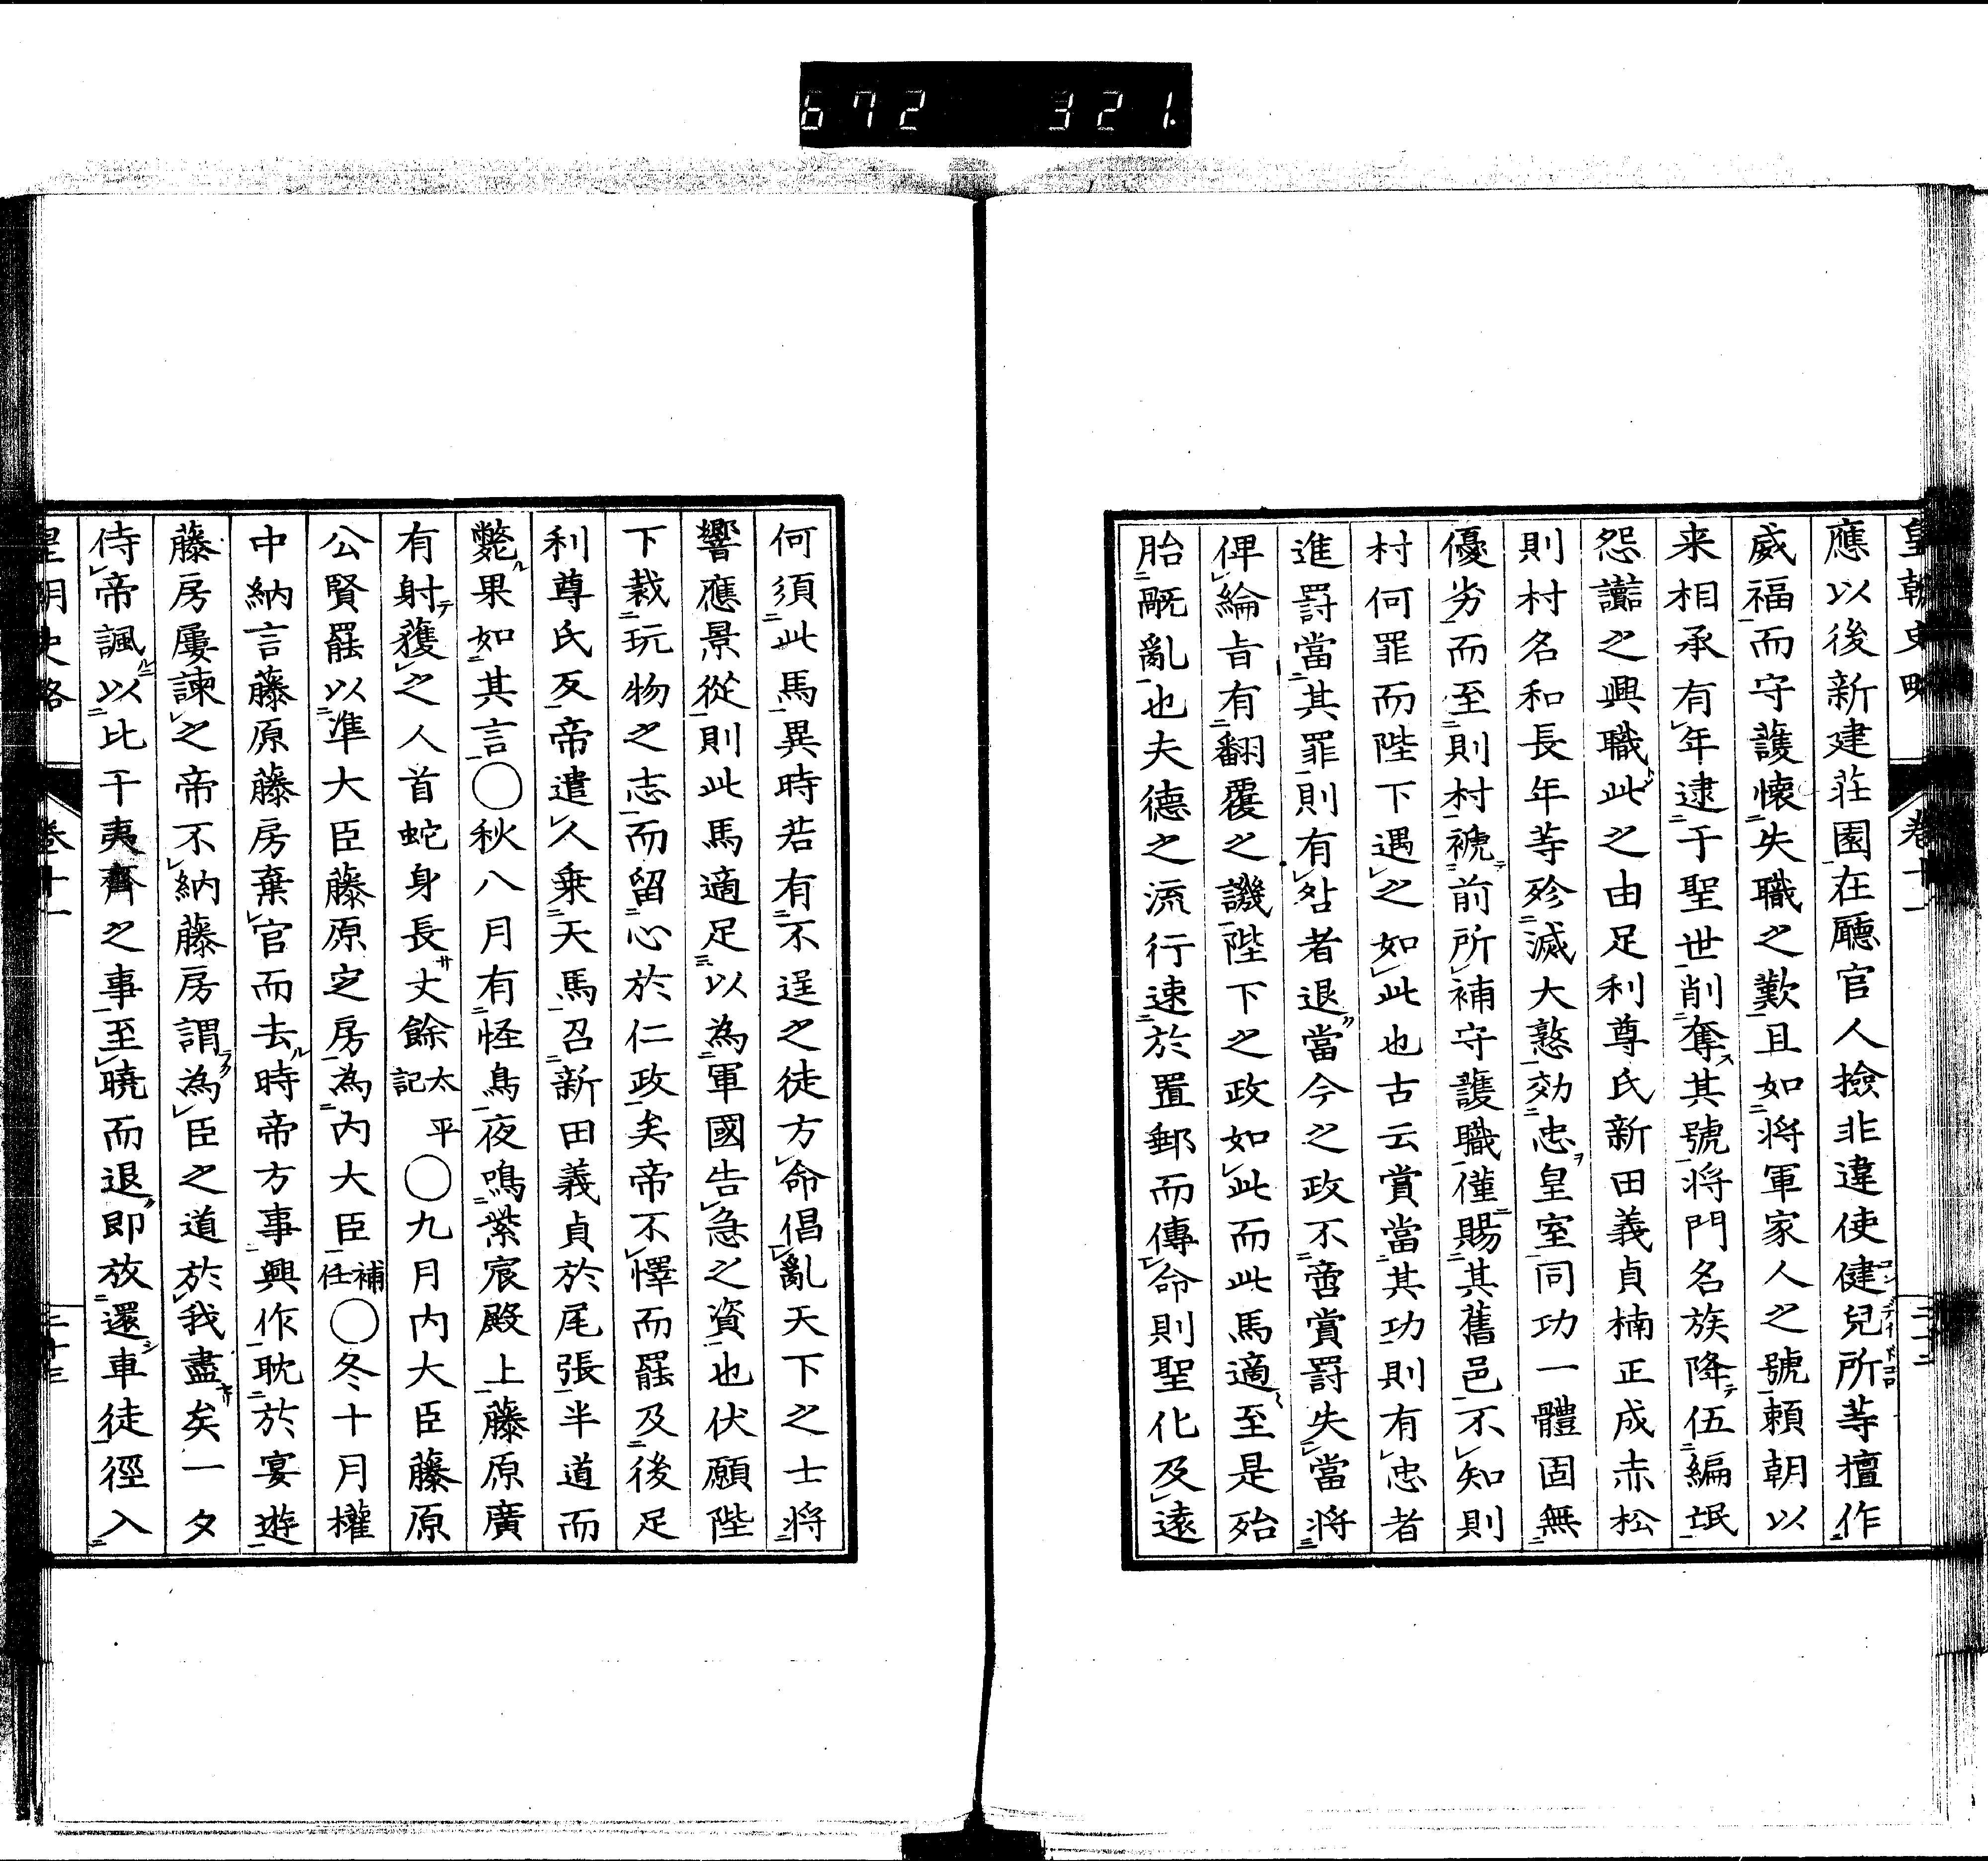 672 321
皇朝史略 卷十一
應以後新建莊園在廳官人撿非違使健兒所等擅作
威福而守護懐失職之歎且如將軍家人之號頼朝以
来相承有年逮于聖世削奪其號將門名族降伍編氓
怨讟之興職此之由足利尊氏新田義貞楠正成赤松
則村名和長年等殄滅大憝効忠皇室同功一體固無
優劣而至則村褫前所補守護職僅賜其舊邑不知則
村何罪而陛下遇之如此也古云賞當其功則有忠者
進罸當其罪則有咎者退當今之政不啻賞罸失當將
俾綸旨有翻覆之譏陛下之政如此而此馬適至是殆
胎厩亂也夫德之流行速於置郵而傳命則聖化及遠
何須此馬異時若有不逞之徒方命倡亂天下之士將
響應景從則此馬適足以為軍國告急之資也伏願陛
下裁玩物之志而留心於仁政矣帝不懌而罷及後足
利尊氏反帝遣人乗天馬召新田義貞於尾張半道而
斃果如其言○秋八月有怪鳥夜鳴紫宸殿上藤原廣
有射獲之人首蛇身長丈餘太平記○九月内大臣藤原
公賢罷以準大臣藤原定房為内大臣補任○冬十月權
中納言藤原藤房棄官而去時帝方事興作耽於宴遊
藤房屢諫之帝不納藤房謂為臣之道於我盡矣一夕
侍帝諷以比干夷齊之事至曉而退即放還車徒徑入
皇朝史略 卷十一 二十三